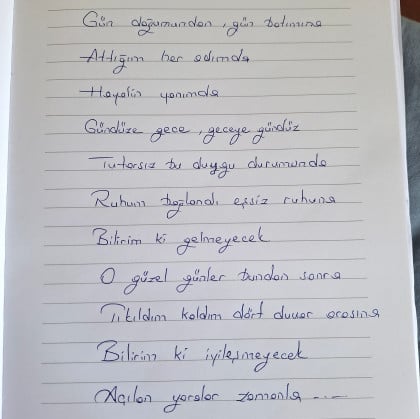 Gün doğumundan, gün batımına
Attığım her adımda
Hayalin yanımda
Gündüze gece, geceye gündüz
Tutarsız bu duygu durumunda
Ruhum bağlandı eşsiz ruhuna
Bilirim ki gelmeyecek
O güzel günler bundan sonra
Tıkıldım kaldım dört duvar arasına
Bilirim ki iyileşmeyecek
Açılan yaralar zamanla ....